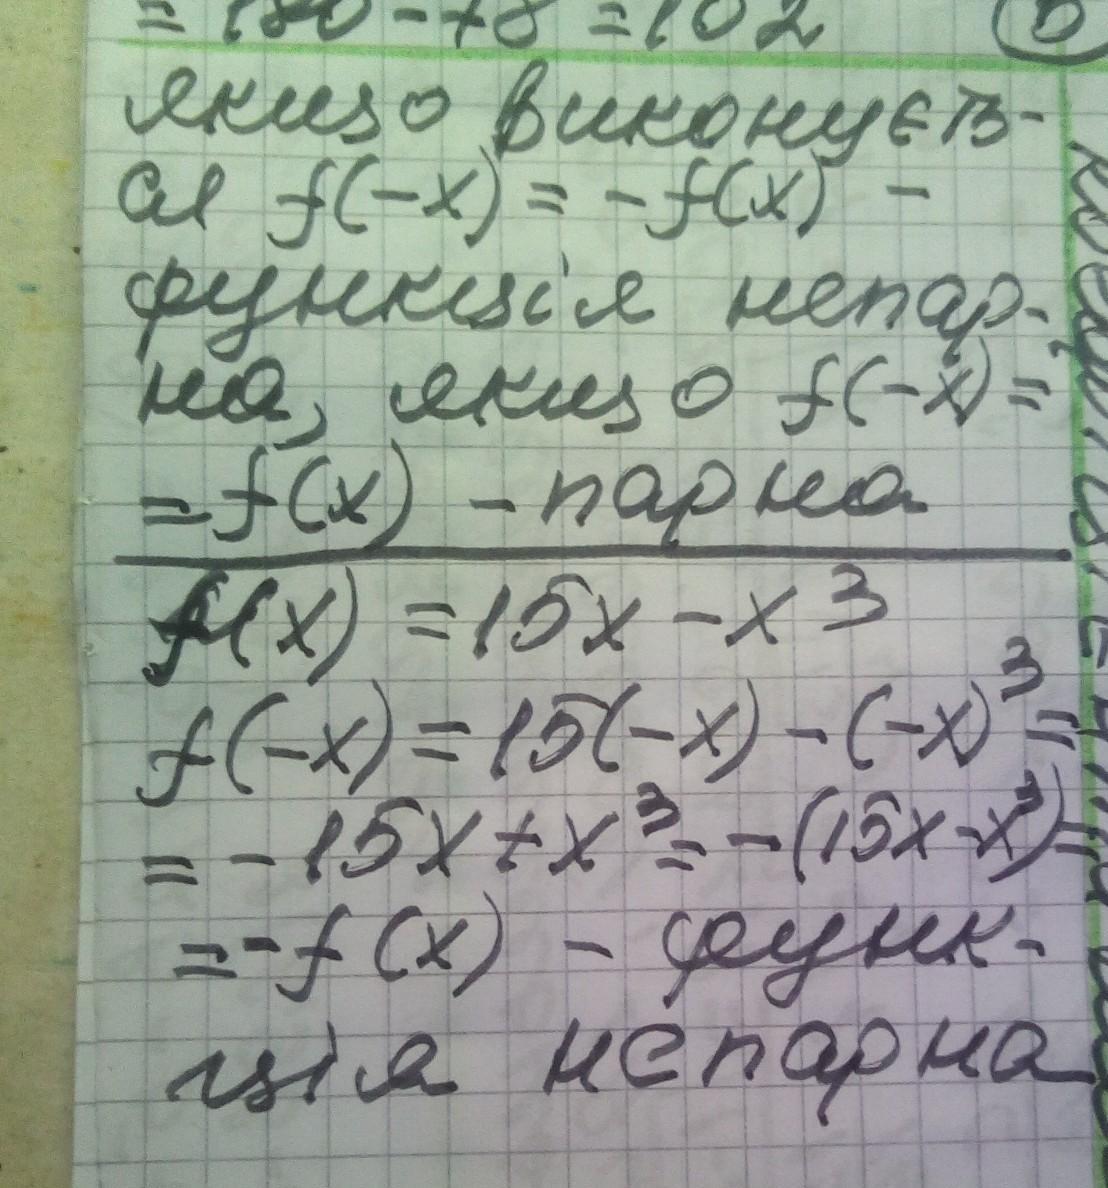 = 180 - 78 = 102
якщо виконуєть-
ся f(-x) = -f(x) -
функція непар-
на, якщо f(-x) =
= f(x) - парна
f(x) = 15x - x³
f(-x) = 15(-x) - (-x)³ =
= -15x + x³ = -(15x - x³) =
= -f(x) - функ-
ція непарна